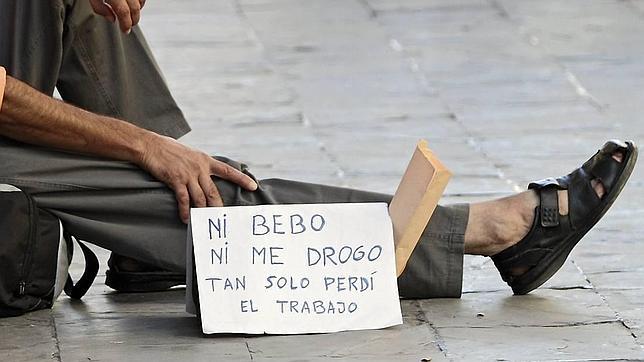 NI BEBO
NI ME DROGO
TAN SOLO PERDÍ
EL TRABAJO